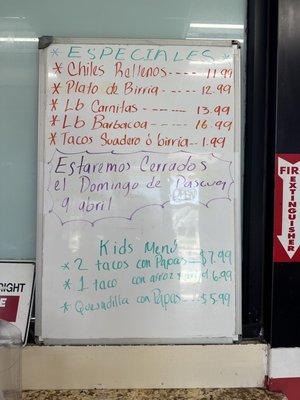 * ESPECIALES *
* Chiles Rellenos ---- 11.99
* Plato de Birria ---- 12.99
* Lb Carnitas ---- 13.99
* Lb Barbacoa --- 16.99
* Tacos Suadero ó birria -- 1.99
Estaremos Cerrados
el Domingo de Pascua
9 abril
Kids Menú
* 2 tacos con Papas -- $7.99
* 1 taco con arroz 6.99
* Quesadilla con Papas -- $5.99
FIRE
EXTINGUISHER
RIGHT